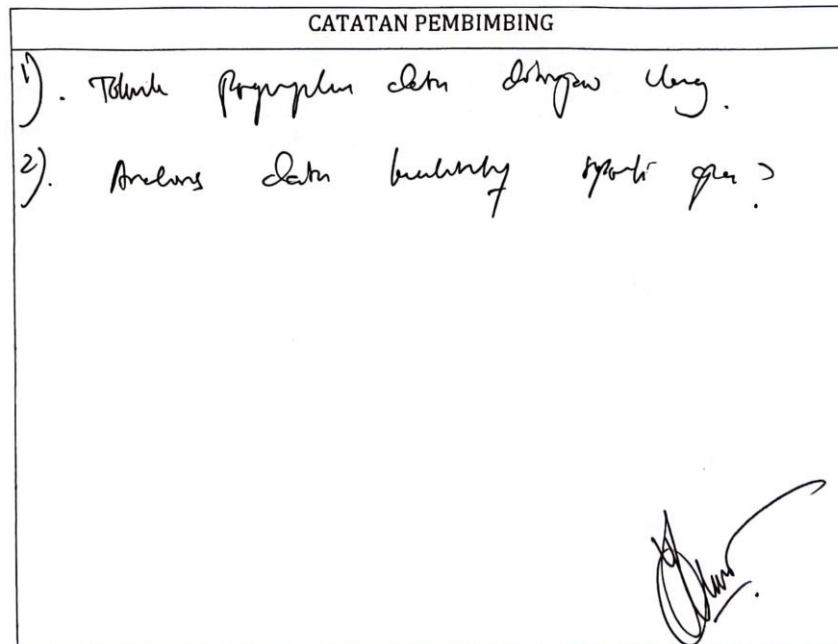 CATATAN PEMBIMBING
1). Teknik pengumpulan data ditinjau ulang.
2). Analisis data seperti apa?